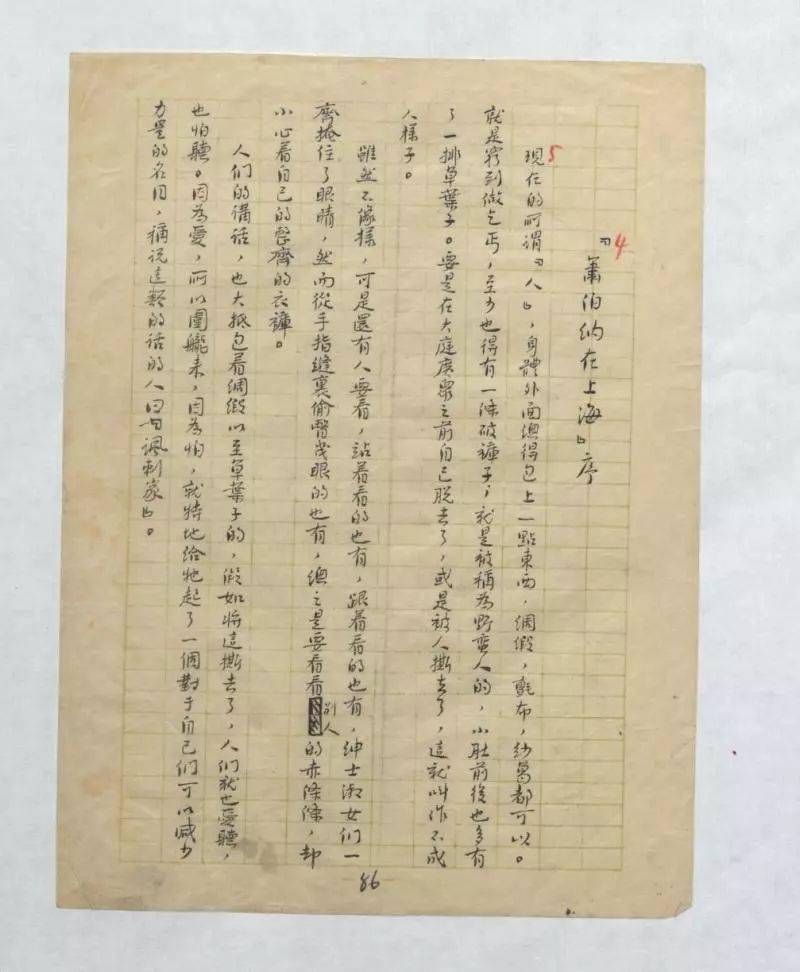 4
『蕭伯納在上海』序
5
現在的所謂『人』，身體外面總得包上一點東西，綢緞，氈布，紗葛都可以。
就是窮到做乞丐，至少也得有一條破褲子；就是被稱為野蠻人的，小肚前後也多有
了一排草葉子。要是在大庭廣衆之前自己脫去了，或是被人撕去了，這就叫作不成
人樣子。
雖然不像樣，可是還有人要看，站着看的也有，跟着看的也有，紳士淑女們一
齊掩住了眼睛，然而從手指縫裏偷瞥幾眼的也有，總之是要看看別人的赤條條，却
小心着自己的整齊的衣褲。
人们的講話，也大抵包着綢緞以至草葉子的，假如将這撕去了，人们就也愛聽，
也怕聽。因為愛，所以圍攏来，因為怕，就特地給牠起了一個對于自己們可以減少
力量的名目，稱说這類的话的人曰『諷刺家』。
86